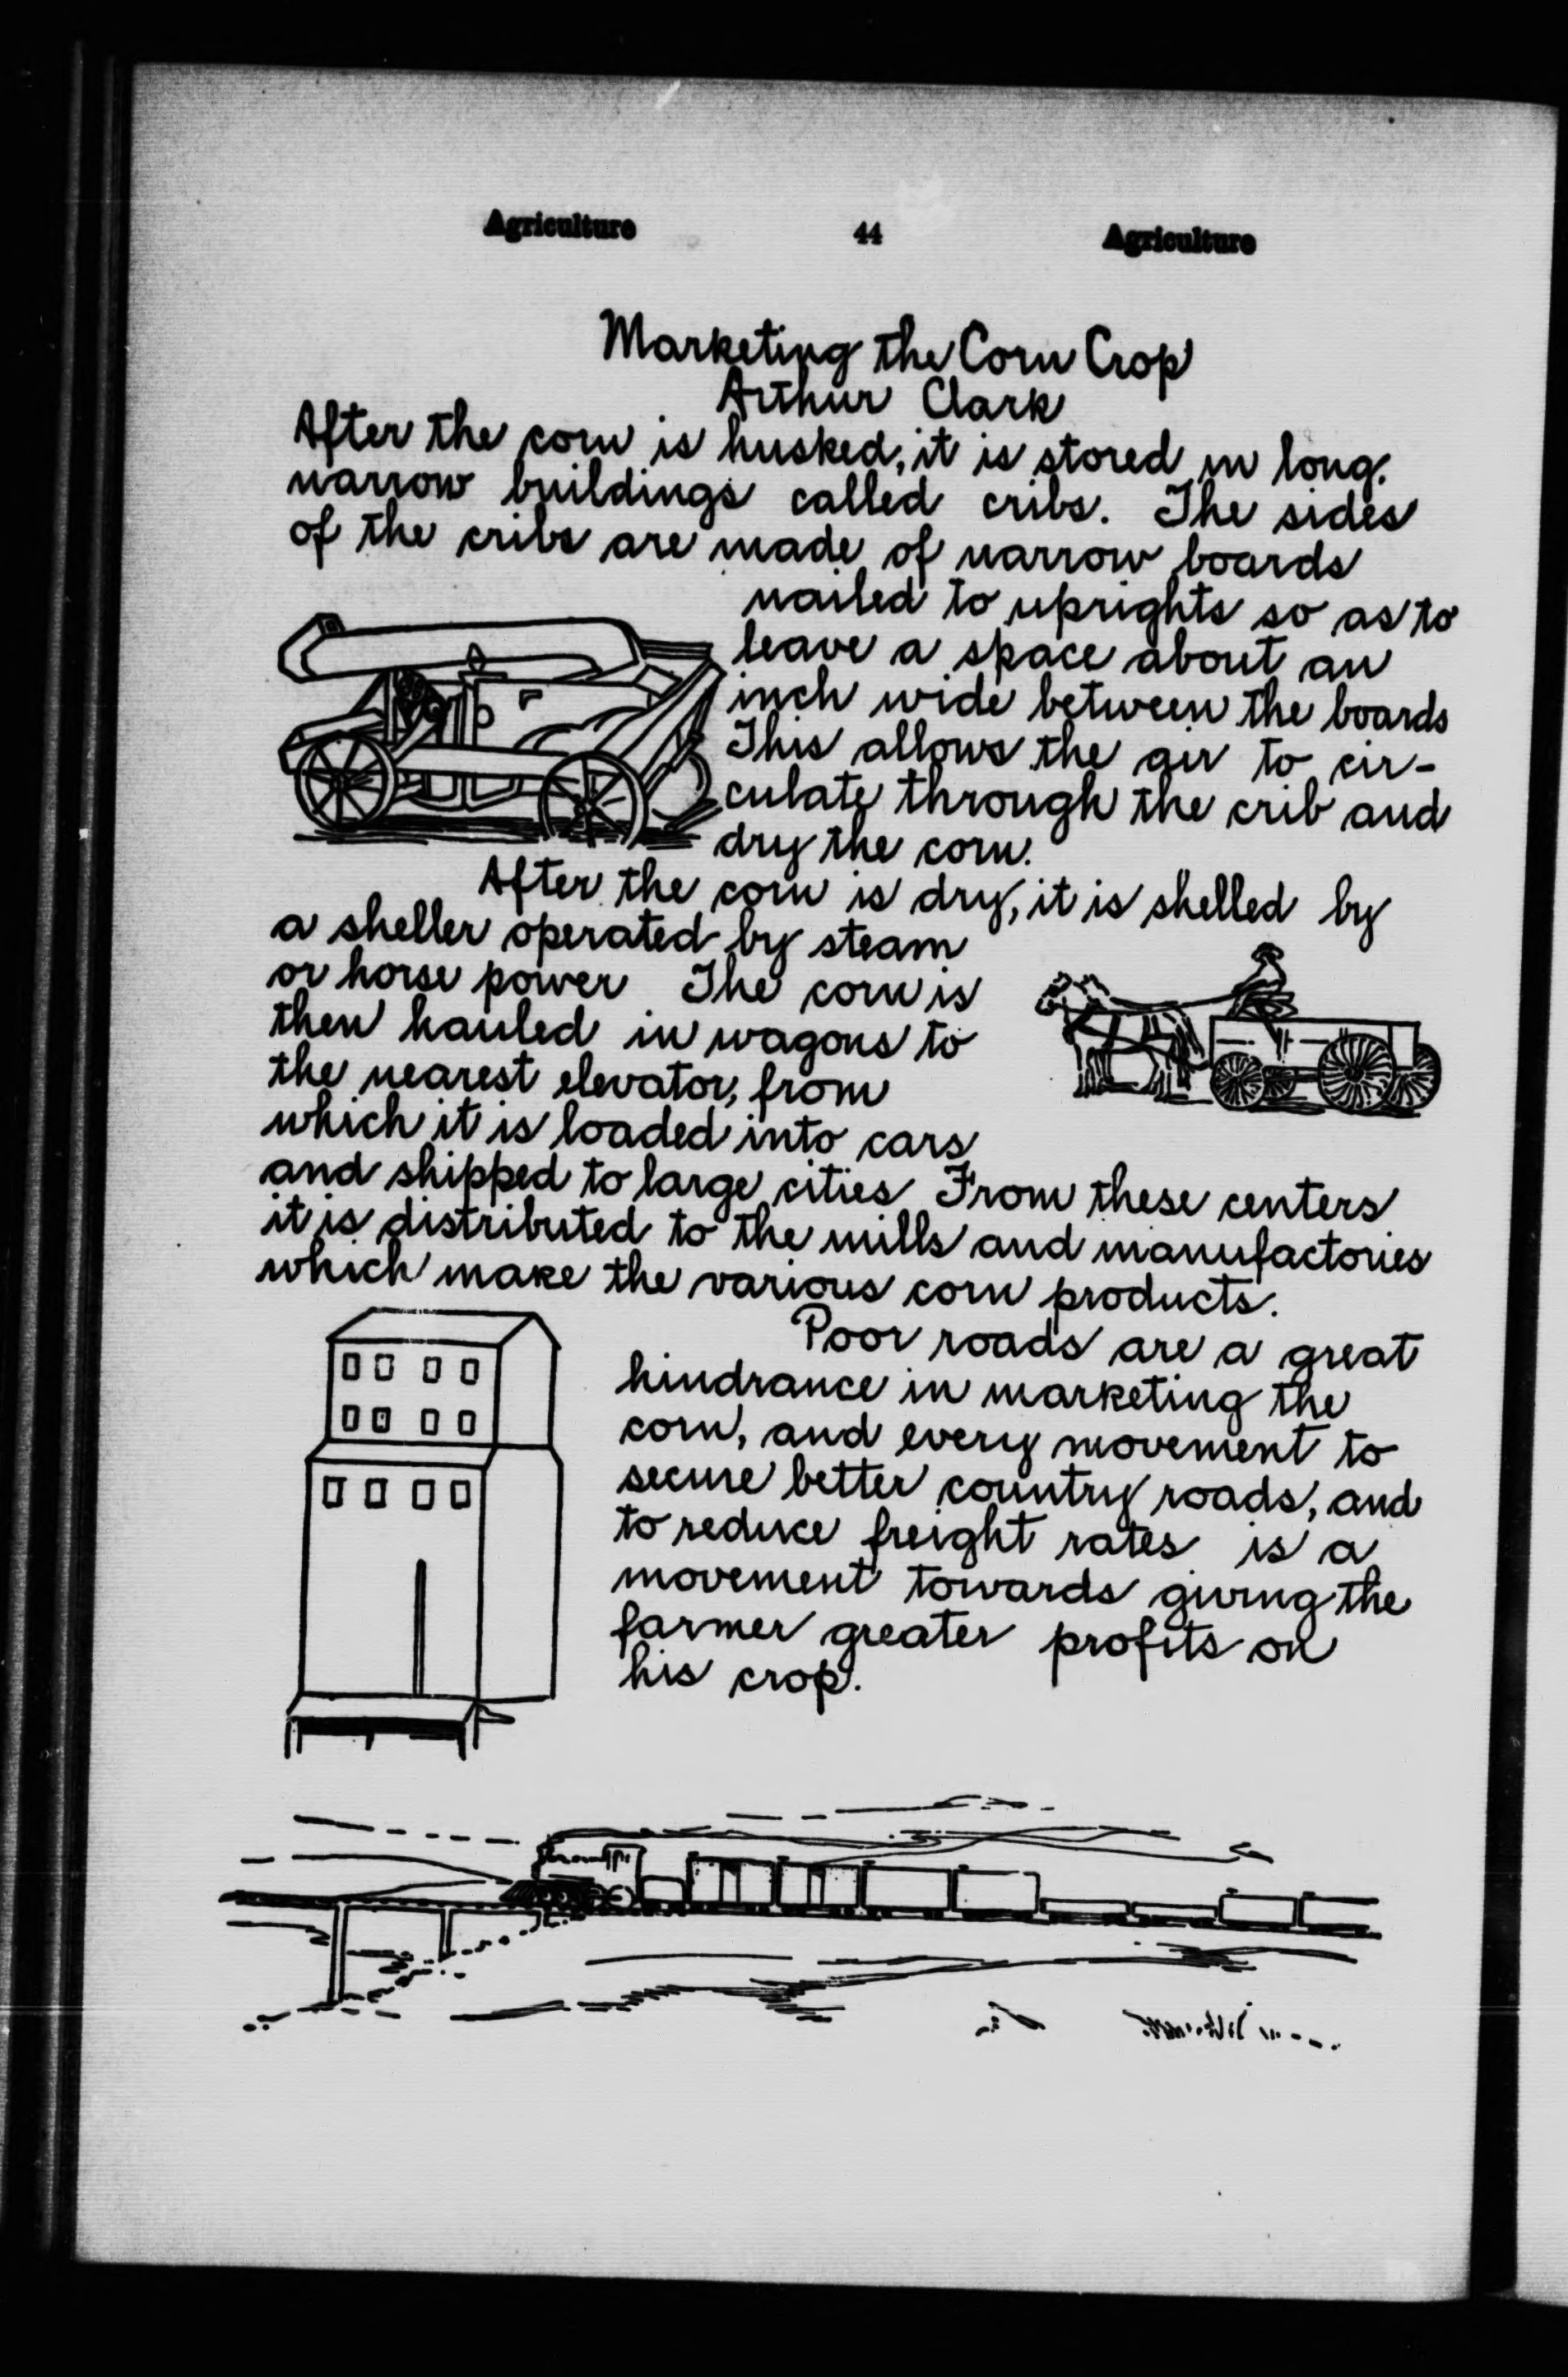 Agriculture 44 Agriculture
Marketing the Corn Crop
Arthur Clark
After the corn is husked, it is stored in long,
narrow buildings called cribs. The sides
of the cribs are made of narrow boards
nailed to uprights so as to
leave a space about an
inch wide between the boards
This allows the air to cir-
culate through the crib and
dry the corn.
After the corn is dry, it is shelled by
a sheller operated by steam
or horse power The corn is
then hauled in wagons to
the nearest elevator, from
which it is loaded into cars
and shipped to large cities From these centers
it is distributed to the mills and manufactories
which make the various corn products.
Poor roads are a great
hindrance in marketing the
corn, and every movement to
secure better country roads, and
to reduce freight rates is a
movement towards giving the
farmer greater profits on
his crop.